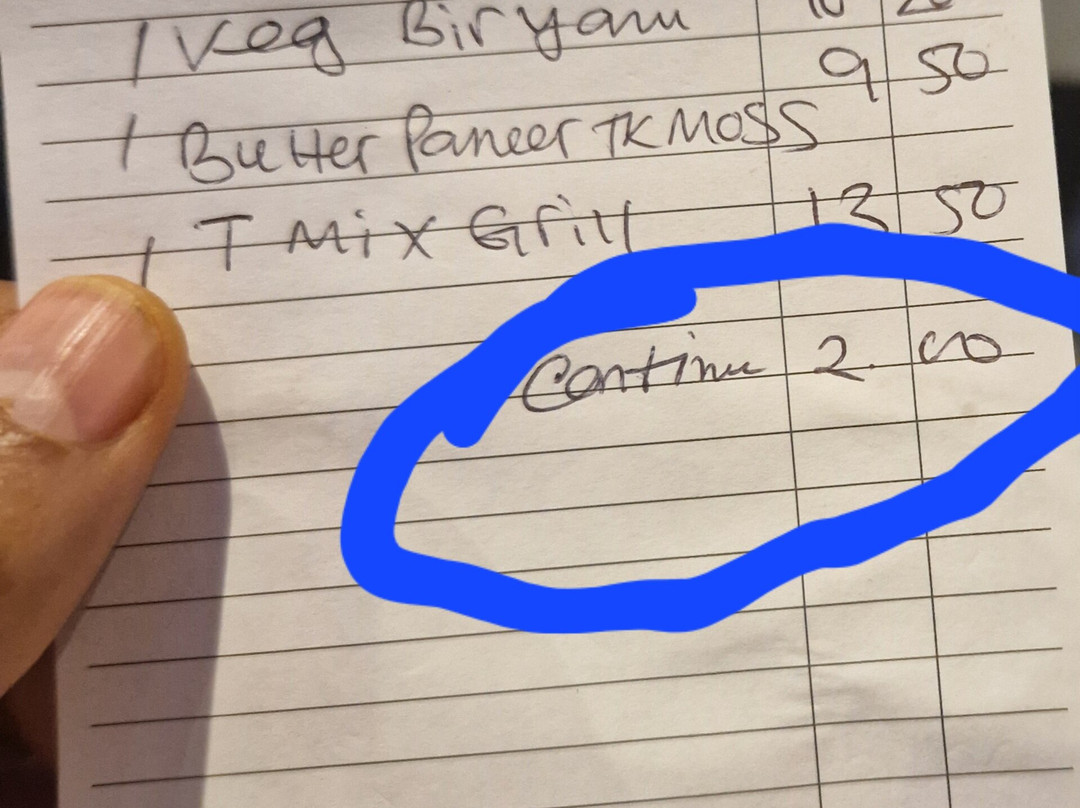 1 Veg Biryani
9 50
1 Butter Paneer TK MOSS
1 T Mix Grill 13 50
Continu 2.00